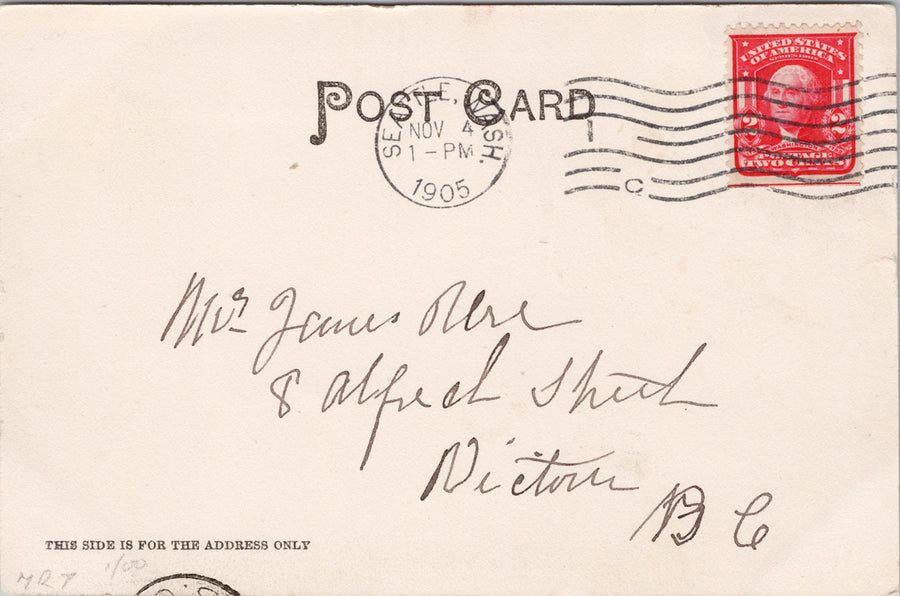 POST CARD
SEATTLE, WASH.
NOV 4
1-PM
1905
C
UNITED STATES
OF AMERICA
SERIES 1902
2 2
WASHINGTON
POSTAGE
TWO CENTS
Mr James
8 Alfred Street
Victoria
B C
THIS SIDE IS FOR THE ADDRESS ONLY
1/00